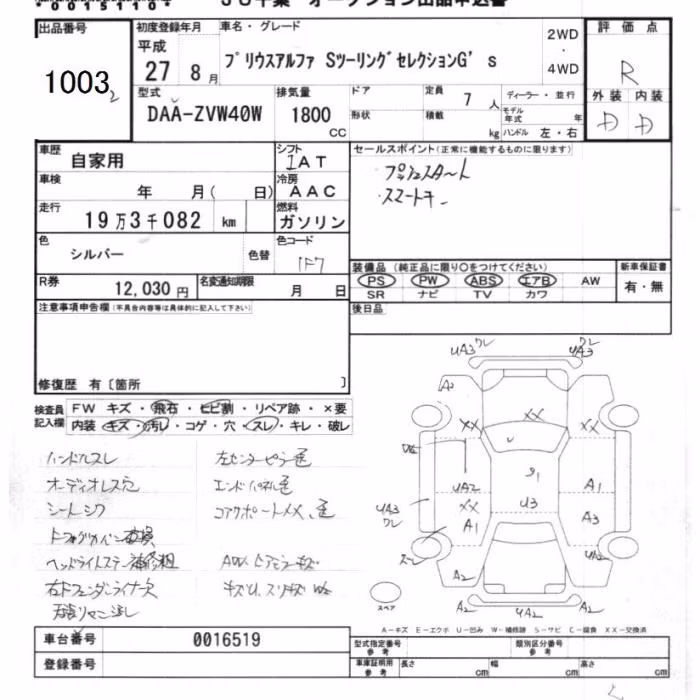 00151104
JU千葉 オークション出品申込書
出品番号 初度登録年月 車名・グレード 評価点
平成 27年 8月 プリウスアルファ SツーリングセレクションG's 2WD・4WD R
1003
型式 排気量 ドア 定員 7人 ディーラー・並行 外装 内装
DAA-ZVW40W 1800CC 形状 積載 kg モデル年式 年 ハンドル 左・右 D D
車歴 自家用 シフト IAT セールスポイント(正常に機能するものに限ります)
車検 年 月( 日) 冷房 AAC プッシュスタート
走行 19万3千082km 燃料 ガソリン ・スマートキー
色 シルバー 色替 色コード 1F7
装備品(純正品に限り○をつけてください) 新車保証書
R券 12,030円 名変通知期限 月 日 PS PW ABS エアB AW 有・無
SR ナビ TV カワ
注意事項申告欄(不具合内容等は具体的に記入して下さい) 後日品
修復歴 有〔箇所 〕
検査員記入欄 FW キズ・飛石・ヒビ割・リペア跡・×要
内装・キズ・汚レ・コゲ・穴・スレ・キレ・破レ
ハンドルスレ 左センターピラー色
オーディオレス穴 エンドパネル色
シートシワ コアサポートメメ、色
ヘッドライトステー補修粗
右ドフェンダーライナー欠
UA3 ワレ UA3 ワレ
A2
XX XX
UA2 XX A1
U3
A1 A3
UA3 ワレ
UA2
A2 A2 UA2 A2
スペア
A-キズ E-エクボ U-凹み W-補修跡 S-サビ C-腐食 XX-交換済
車台番号 0016519 型式指定番号 参考 類別区分番号 参考
登録番号 車庫証明用 参考 長さ cm 幅 cm 高さ cm